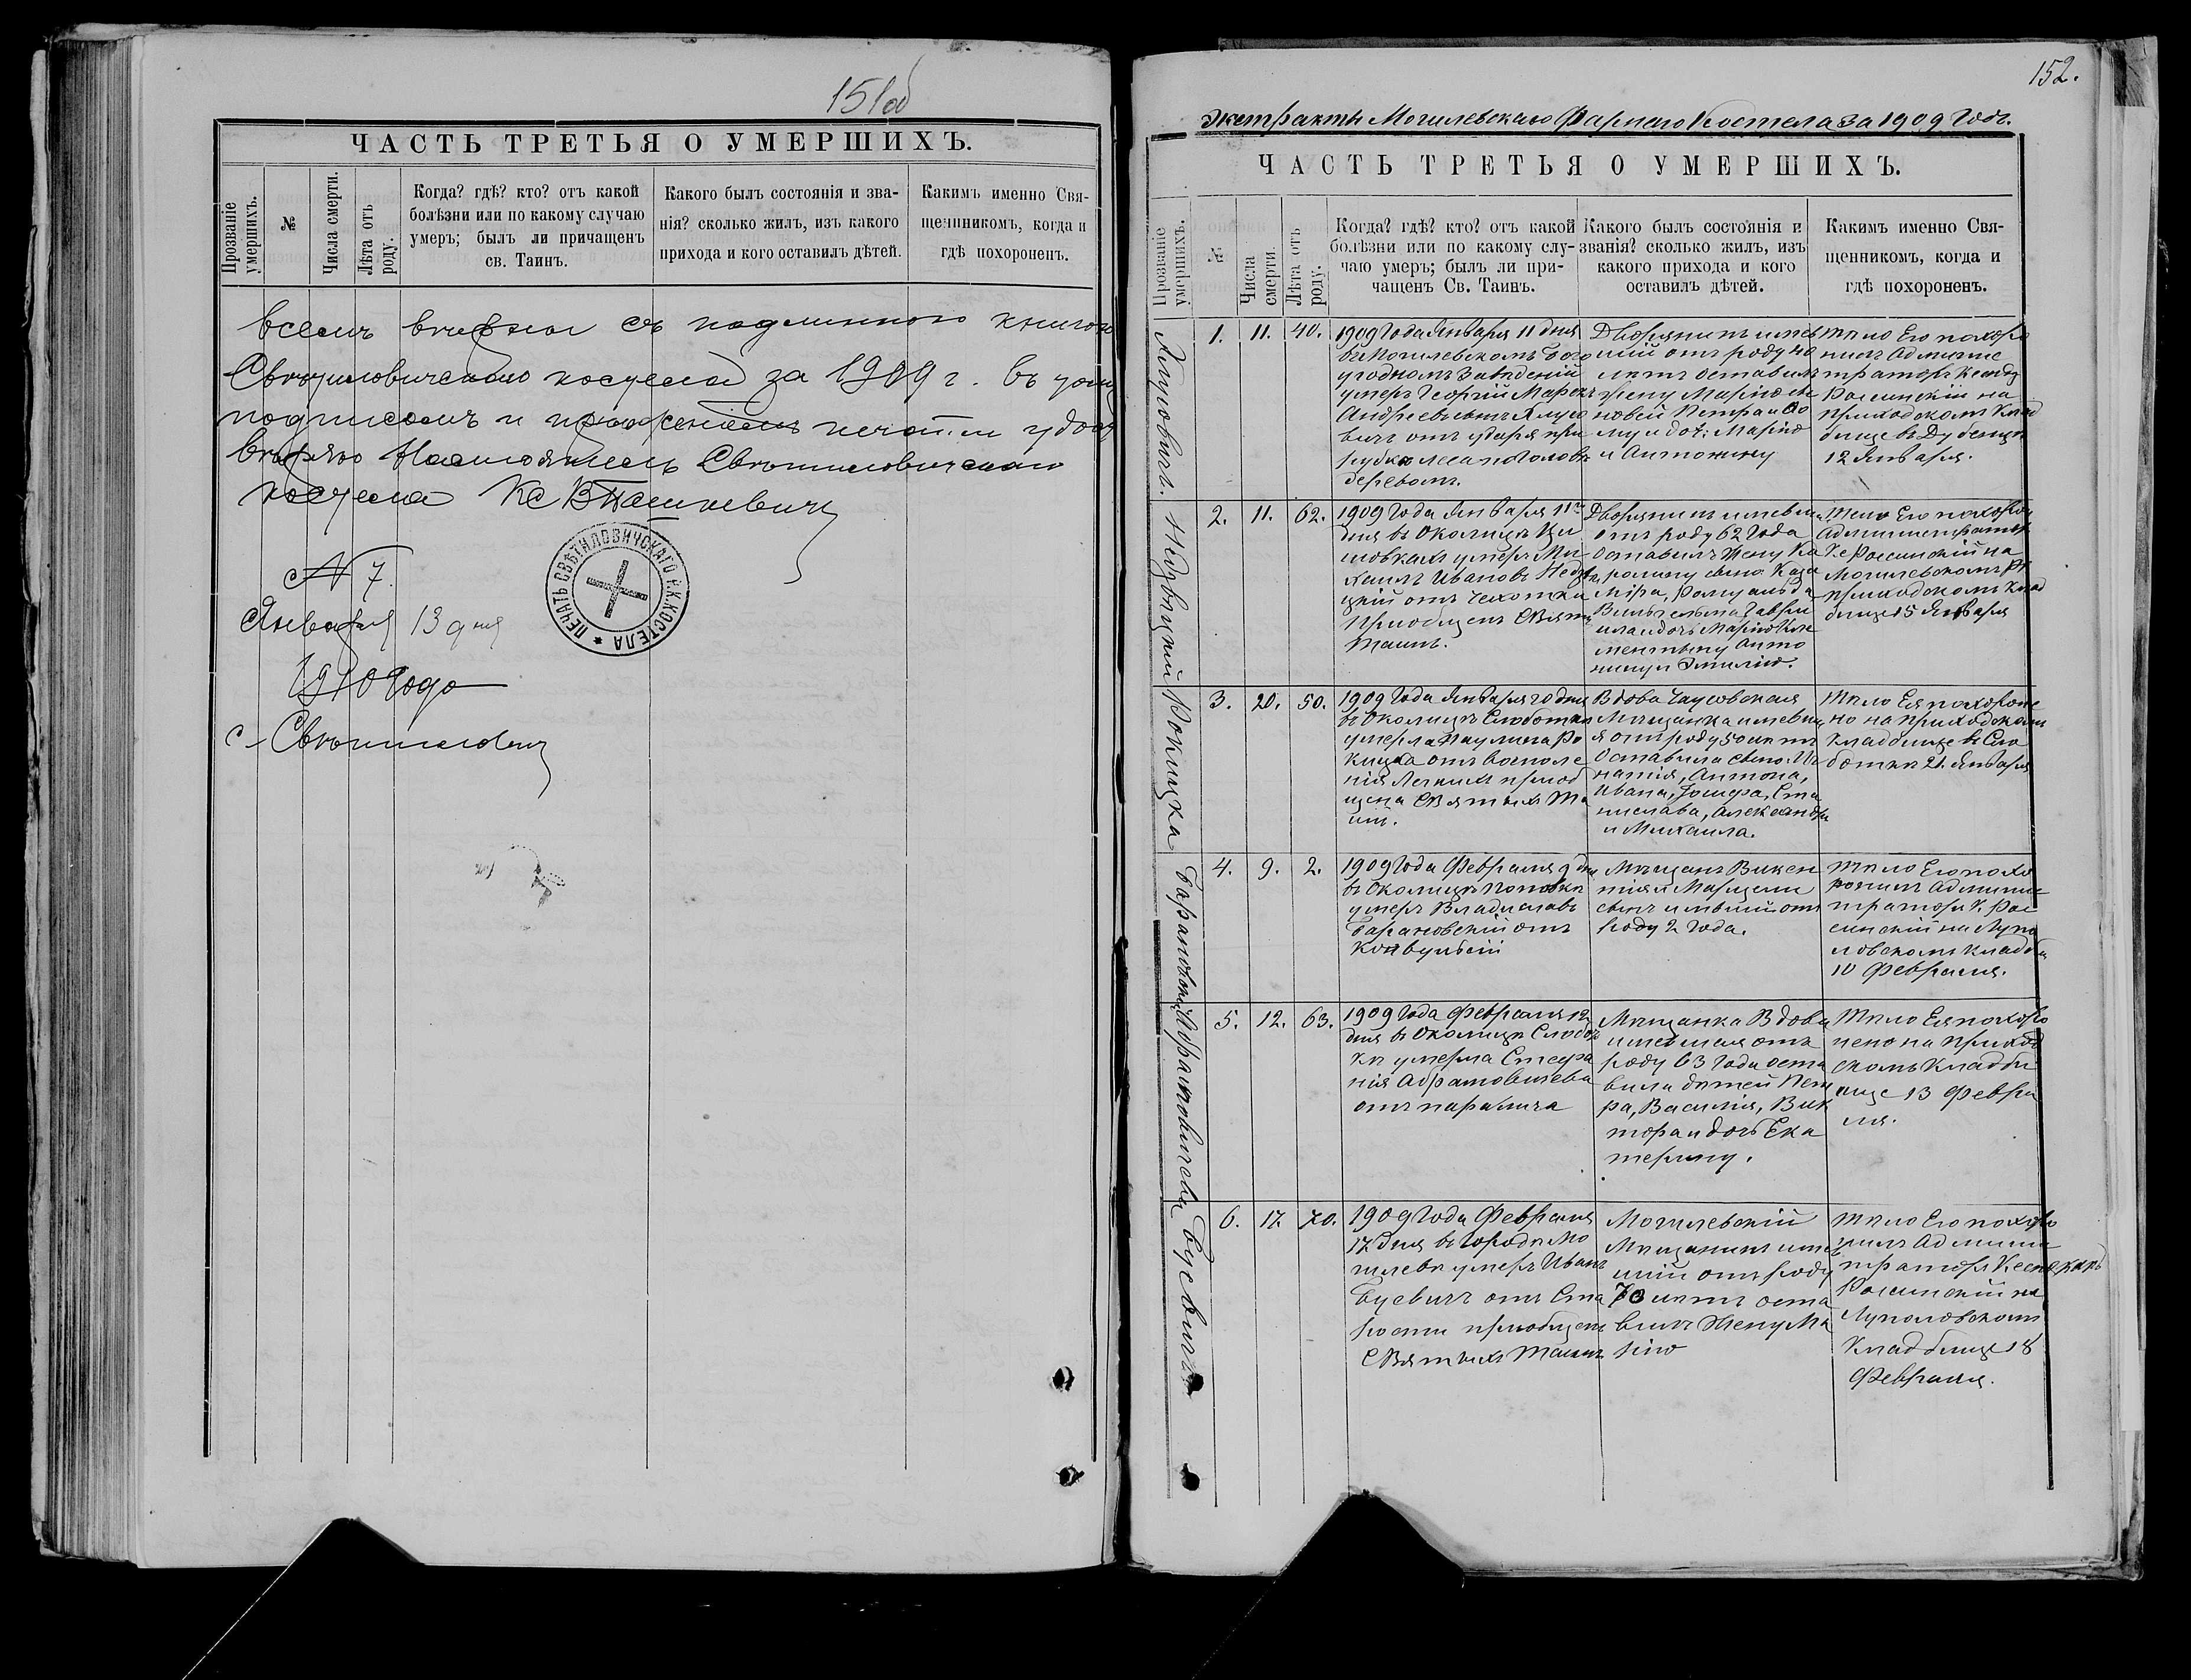 151об
ЧАСТЬ ТРЕТЬЯ О УМЕРШИХЪ.
Прозваніе умершихъ.
№
Числа смерти.
Лѣта отъ роду.
Когда? гдѣ? кто? отъ какой
болѣзни или по какому случаю
умеръ; былъ ли причащенъ
св. Таинъ.
Какого былъ состоянія и зва-
нія? сколько жилъ, изъ какого
прихода и кого оставилъ дѣтей.
Какимъ именно Свя-
щенникомъ, когда и
гдѣ похороненъ.
съ подлинною книгою
костела за 1909 г. въ
подписомъ и печати удосто
вѣряю Настоятель Свѣтиловичскаго
костела Кс
№ 7.
Января 13 дня
1910 года
с. Свѣтиловичи
ПЕЧАТЬ СВѢТИЛОВИЧСКАГО Р.К. КОСТЕЛА
152.
Экстрактъ Могилевскаго Фарнаго Костела за 1909 Годъ.
ЧАСТЬ ТРЕТЬЯ О УМЕРШИХЪ.
Прозваніе умершихъ.
№
Числа смерти.
Лѣта отъ роду.
Когда? гдѣ? кто? отъ какой
болѣзни или по какому слу-
чаю умеръ; былъ ли при-
чащенъ Св. Таинъ.
Какого былъ состоянія и
званія? сколько жилъ, изъ
какого прихода и кого
оставилъ дѣтей.
Какимъ именно Свя-
щенникомъ, когда и
гдѣ похороненъ.
1. 11. 40.
1909 Года Января 11 дня
въ Могилевскомъ Бого
угодномъ Заведеніи
умеръ Георгій
деревомъ.
Дворянинъ имев
шій отъ роду 40
лѣтъ оставилъ
жену Марію
и Антонину
Тѣло Его похоро
нилъ Админис
траторъ Ксендз
Росинскій на
приходскомъ Клад
бище
12 Января.
Недзвѣцкій
2. 11. 62.
1909 Года Января 11го
дня въ Околицѣ
умеръ Ми
хаилъ Ивановъ Недзвѣ
цкій отъ Чахотки
Пріобщенъ Святы
Таинъ.
Дворянинъ имевш
отъ роду 62 Года
Оставилъ Жену Ка
ролину сыно Кази
міра, Ромуальда
Вильгельма Гаври
ила и дочь Марію Кле
ментыну Анто
нину и Эмилію.
Тѣло Его похоро
Администраторъ
Кс Росинскій на
Могилевскомъ
приходскомъ Клад
бище 15 Января
Рокицка
3. 20. 50.
1909 Года Января 20 дня
въ Околицѣ Слободкѣ
умерла Паулина Ро
кицка отъ воспале
нія Легкихъ приоб
щена Святыхъ Та
инъ.
Вдова Чаусовская
Мѣщанка имевш
я отъ роду 50 лѣтъ
Оставила сыно. Иг
натія, Антона,
Ивана, Іосифа, Ста
нислава, Александр
и Михаила.
Тѣло Ея похороне
но на приходском
Кладбище въ Сло
бодкѣ 21. Января
Барановскій
4. 9. 2.
1909 Года Февраля 9 дня
въ Околицѣ
умеръ Владиславъ
Барановскій отъ
Конвульсій
Мѣщанъ Викен
тія и
сынъ имевшій отъ
роду 2 Года.
Тѣло Его похо
ронилъ Админис
траторъ К. Рос
синскій на Лупо
ловскомъ Кладби
10 Февраля.
Абрамовичева
5. 12. 63.
1909 Года Февраля 12
дня въ Околицѣ Слобод
кѣ умерла Стефа
нія Абрамовичева
отъ паралича
Мѣщанка Вдова
имевшая отъ
роду 63 Года оста
вила дѣтей Пет
ра, Василія, Вик
тора и дочь Ека
терину.
Тѣло Ея похоро
нено на приход
скомъ Кладби
ще 13 Февра
ля.
Бусевичъ
6. 17. 70.
1909 Года Февраля
17 дня въ Городѣ Мо
гилевѣ умеръ Иванъ
Бусевичъ отъ Ста
рости приобщен
Святыхъ Таинъ
Могилевскій
Мѣщанинъ имев
шій отъ роду
70 лѣтъ оста
вилъ Жену Ма
рію
Тѣло Его похоро
нилъ Админис
траторъ
Росинскій на
Луполовскомъ
Кладбище 18
Февраля.